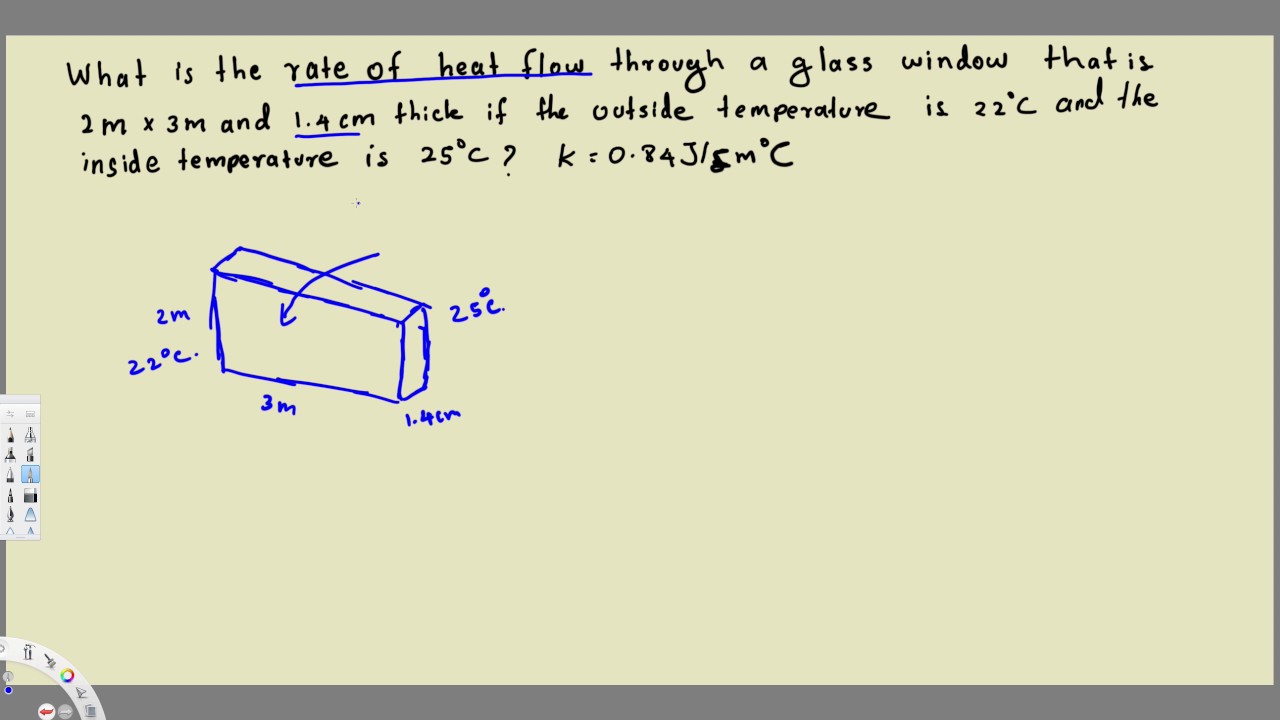 What is the rate of heat flow through a glass window that is
2m x 3m and 1.4 cm thick if the outside temperature is 22°C and the
inside temperature is 25°C? k = 0.84 J/s m°C
2m
25°C.
22°C.
3m
1.4cm